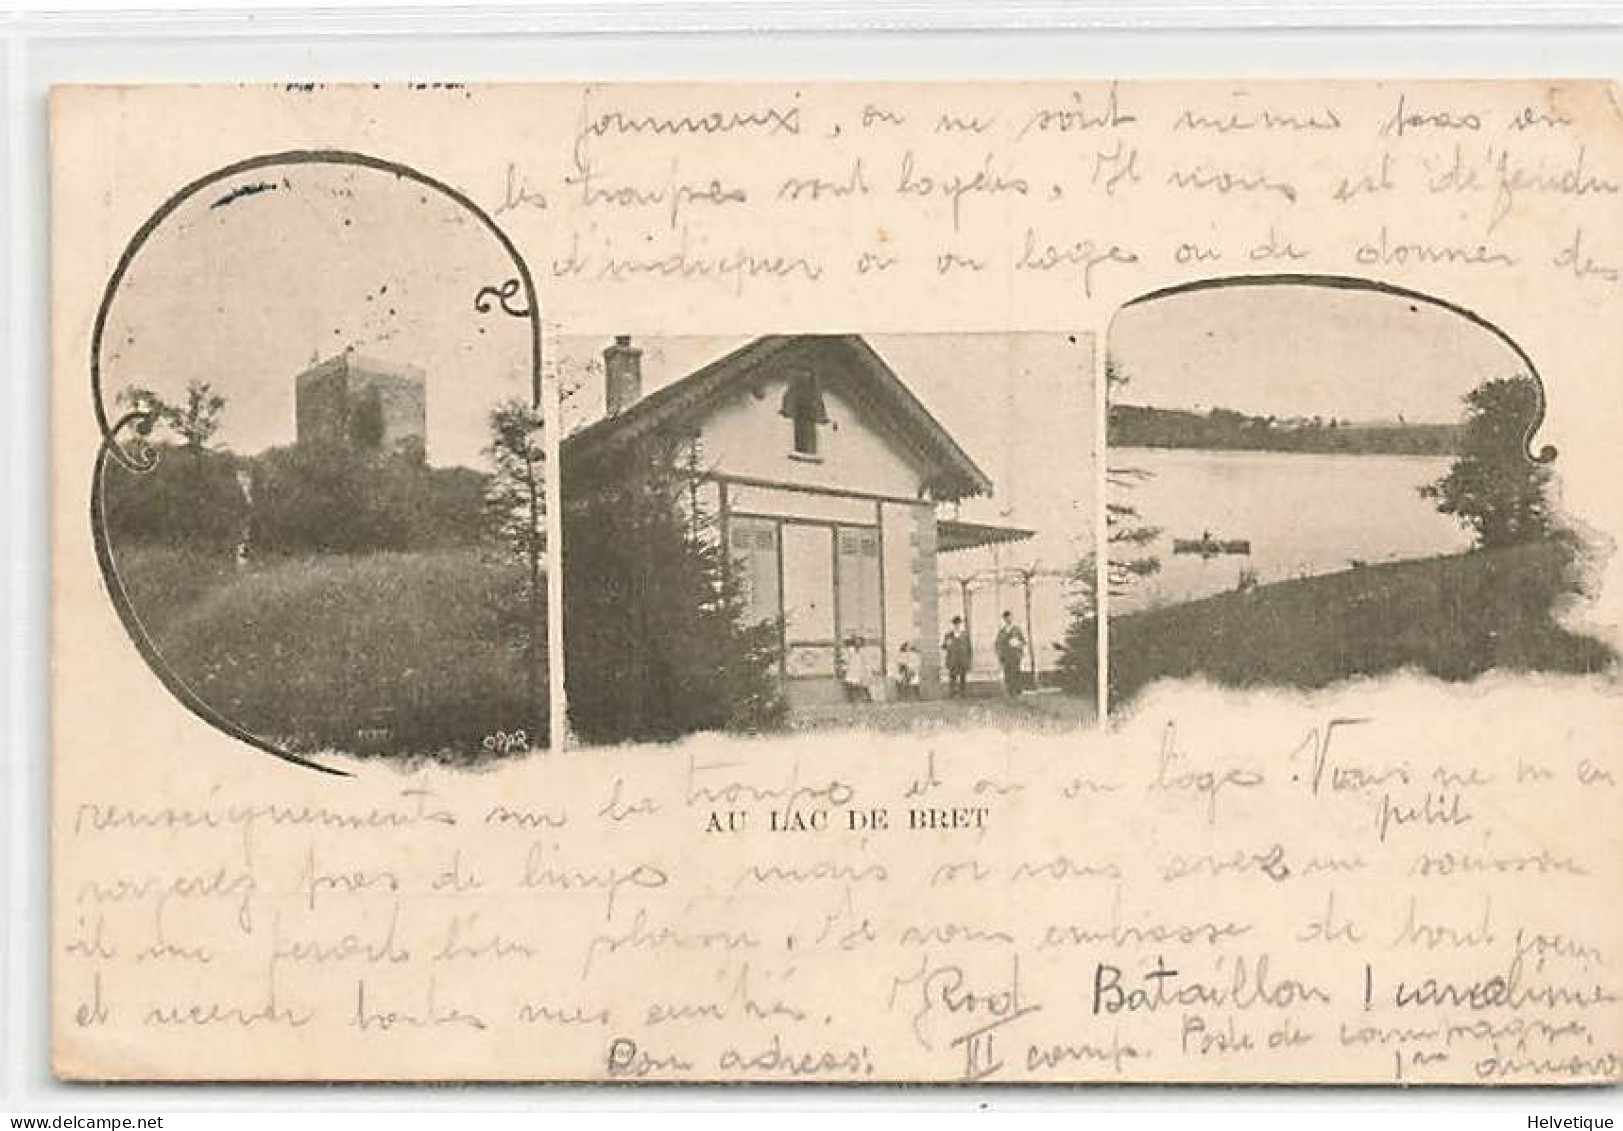 journaux, on ne sait même pas où
les troupes sont logées. Il nous est défendu
d'indiquer où on loge ou de donner des
renseignements sur la troupe et où on loge. Vous ne m'en
AU LAC DE BRET
petit
pas de linge, mais si vous avez un saucisson
il me ferait bien plaisir. Je vous embrasse de tout coeur
et recevez toutes mes amitiés.
Bataillon 1 carabinie
Bon adress: III comp. Poste de campagne.
1re
Helvetique